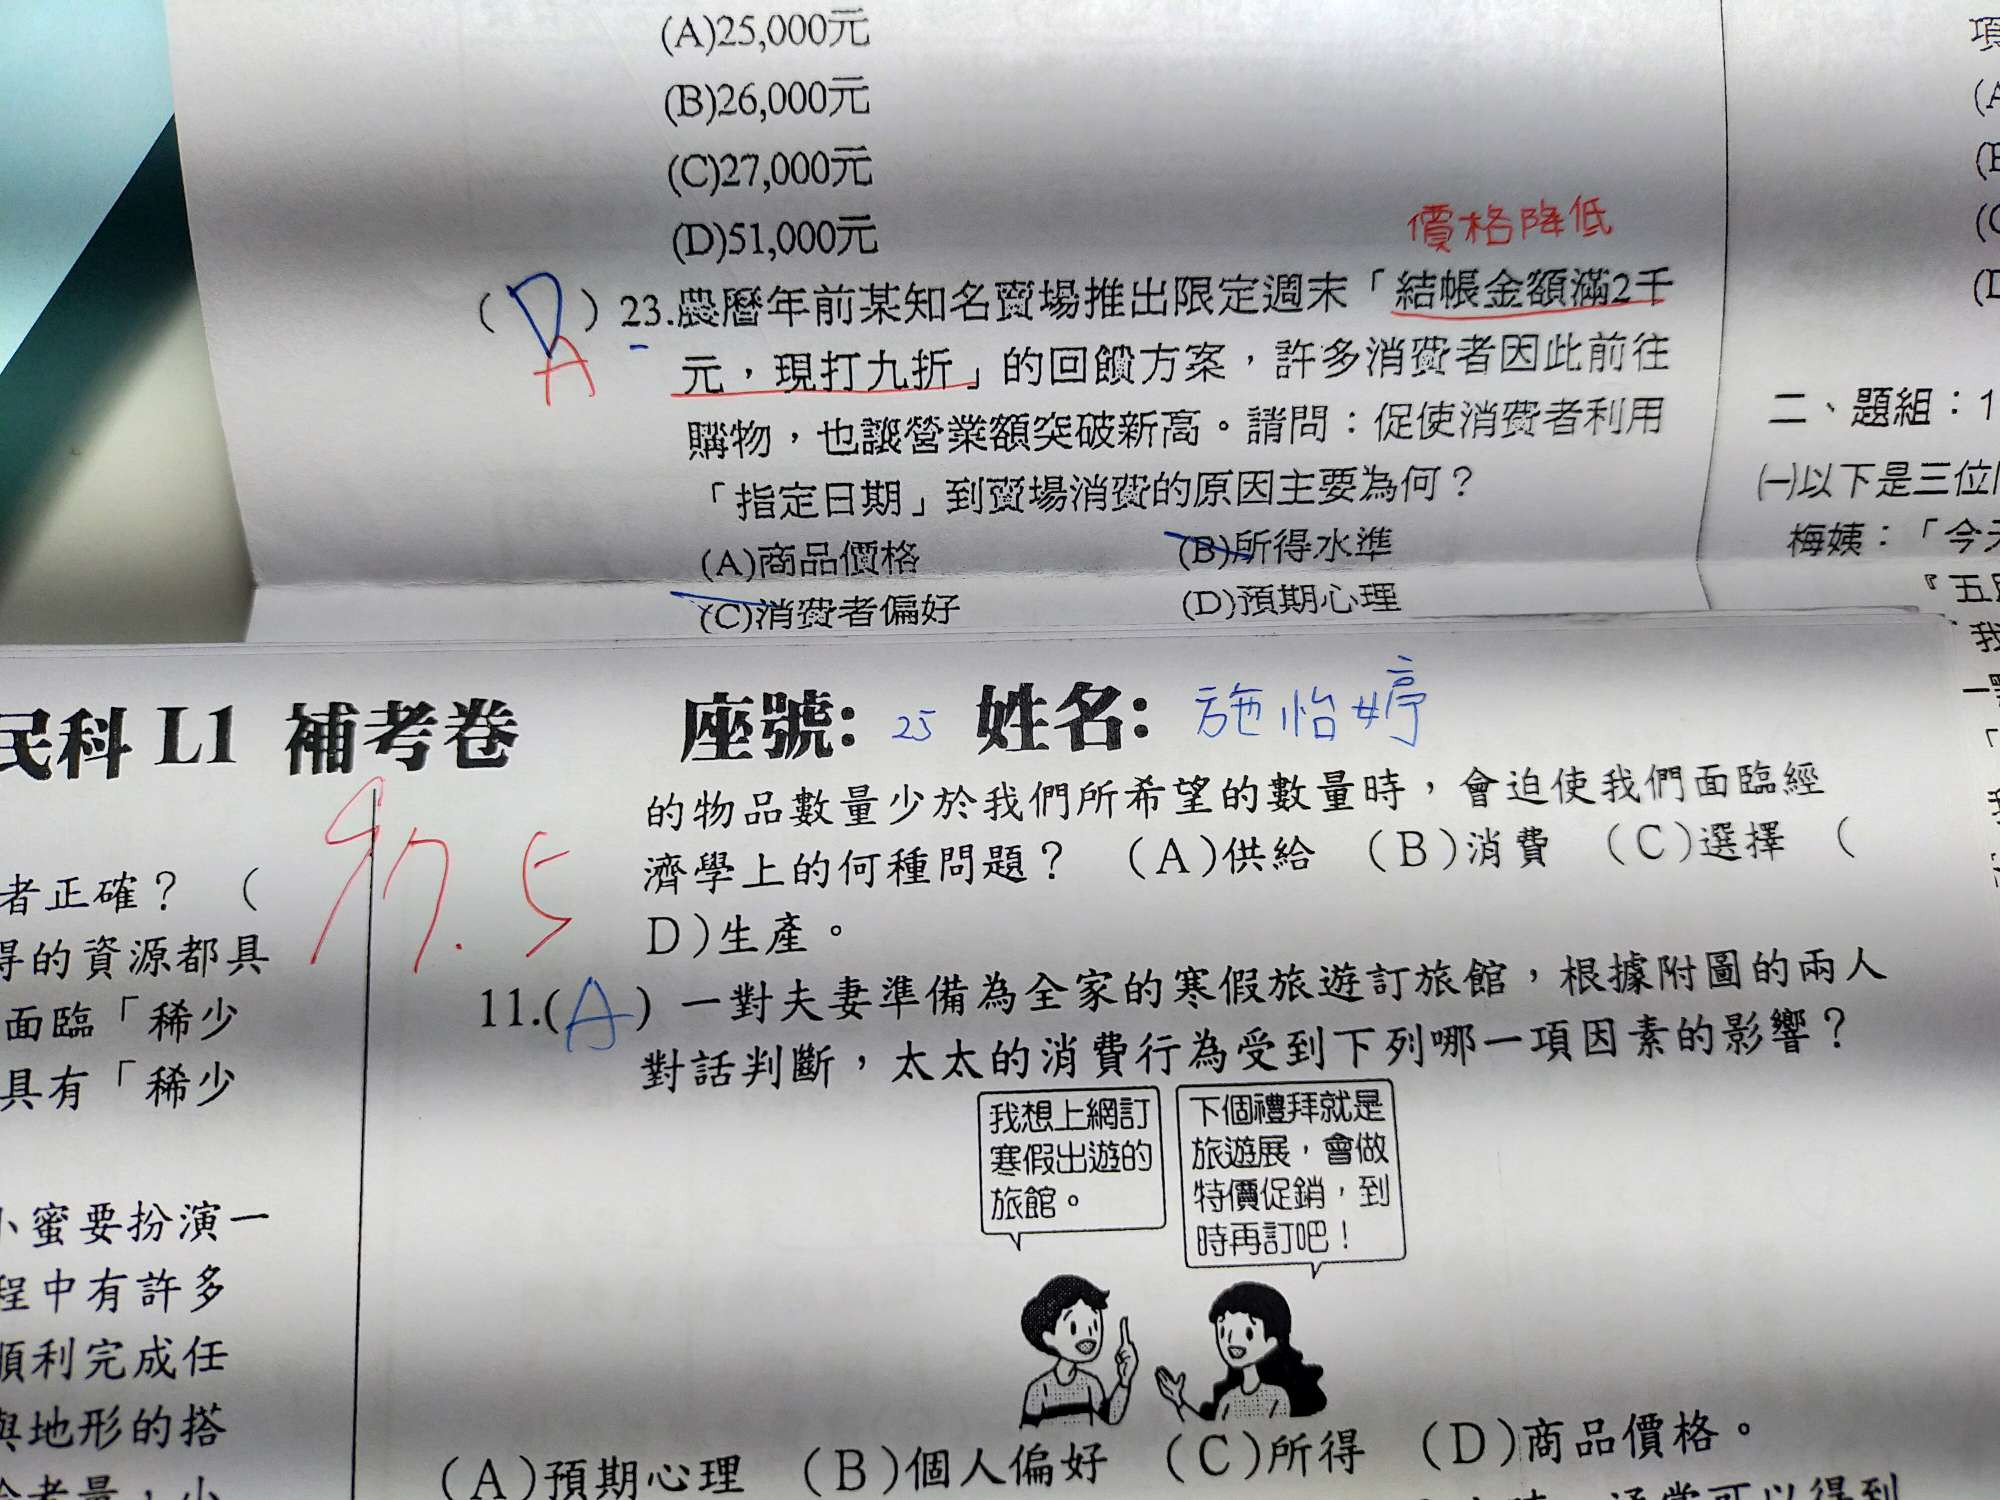 (A)25,000元
(B)26,000元
(C)27,000元
(D)51,000元
價格降低
(D) 23.農曆年前某知名賣場推出限定週末「結帳金額滿2千
A
元，現打九折」的回饋方案，許多消費者因此前往
購物，也讓營業額突破新高。請問：促使消費者利用
「指定日期」到賣場消費的原因主要為何？
(A)商品價格 (B)所得水準
(C)消費者偏好 (D)預期心理
項
二、題組：1
㈠以下是三位
梅姨：「今天
『五
我
民科 L1 補考卷 座號: 25 姓名: 施怡婷
97.5
者正確？ (
得的資源都具
面臨「稀少
具有「稀少
小蜜要扮演一
程中有許多
順利完成任
與地形的搭
的物品數量少於我們所希望的數量時，會迫使我們面臨經
濟學上的何種問題？ (A)供給 (B)消費 (C)選擇 (
D)生產。
11.(A) 一對夫妻準備為全家的寒假旅遊訂旅館，根據附圖的兩人
對話判斷，太太的消費行為受到下列哪一項因素的影響？
我想上網訂
寒假出遊的
旅館。
下個禮拜就是
旅遊展，會做
特價促銷，到
時再訂吧！
(A)預期心理 (B)個人偏好 (C)所得 (D)商品價格。